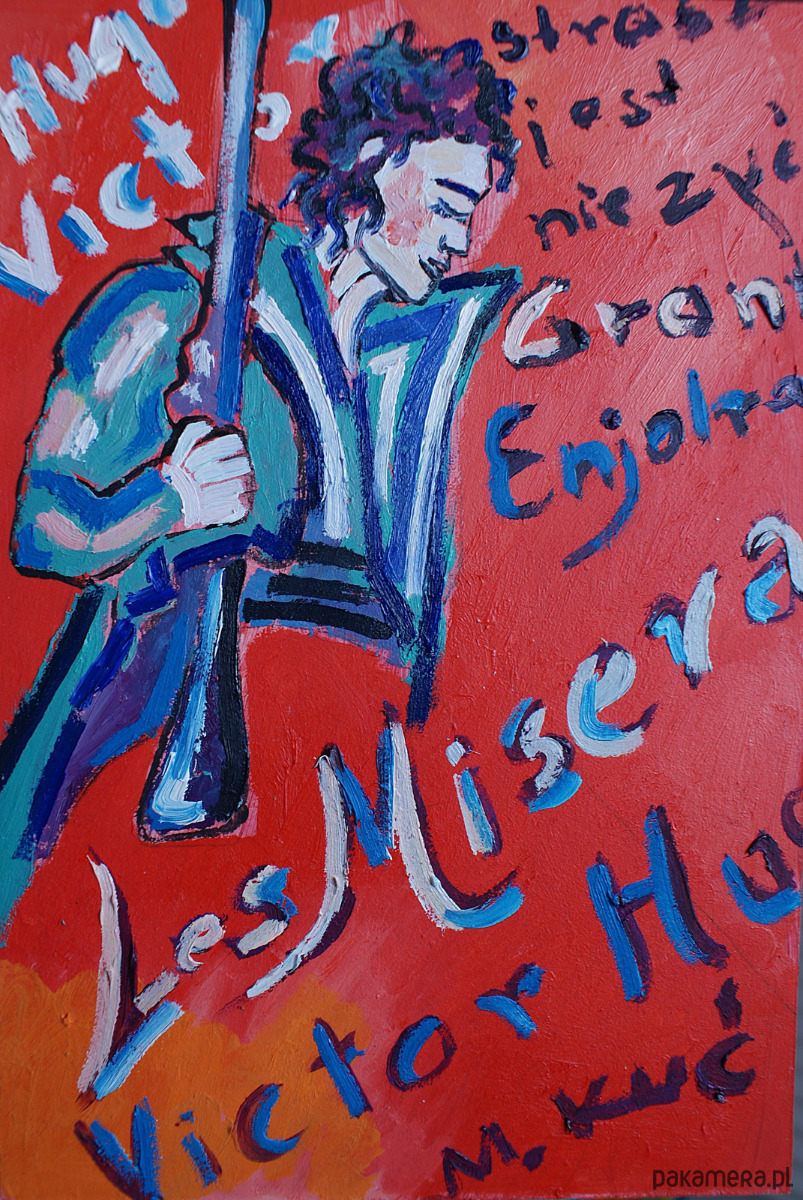 Hugo
Victo
jest
nie żyć
Grant
Enjolra
Les Misera
Victor Hug
M. Kuć
pakamera.pl